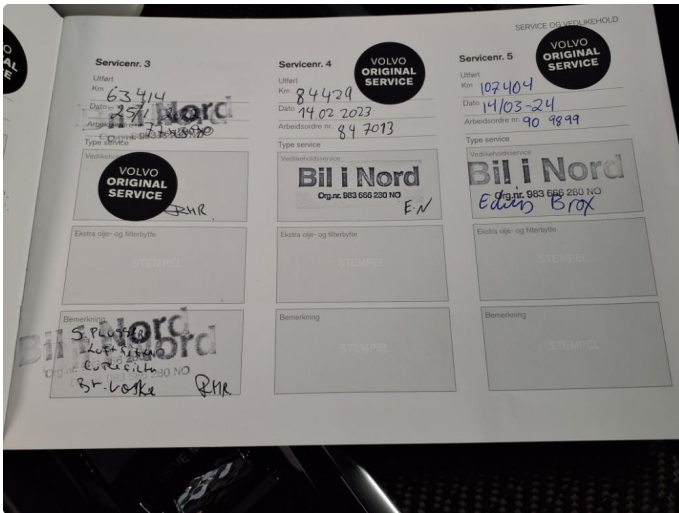 SERVICE OG VEDLIKEHOLD
Servicenr. 3
Utført
Km 63414
Dato
Bil i Nord
Type service
Vedlikeholdsservice
VOLVO
ORIGINAL
SERVICE
RHR.
Ekstra olje- og filterbytte
STEMPEL
Bemerkning
Bil i Nord
S. PLUGGER
Luftfilter
RHR
Servicenr. 4
VOLVO
ORIGINAL
SERVICE
Utført
Km 84429
Dato 14 02 2023
Arbeidsordre nr. 84 7013
Type service
Vedlikeholdsservice
Bil i Nord
Org.nr. 983 666 280 NO
E.N
Ekstra olje- og filterbytte
STEMPEL
Bemerkning
STEMPEL
Servicenr. 5
VOLVO
ORIGINAL
SERVICE
Utført
Km 107404
Dato 14/03-24
Arbeidsordre nr. 90 9899
Type service
Vedlikeholdsservice
Bil i Nord
Org.nr. 983 666 280 NO
Brox
Ekstra olje- og filterbytte
STEMPEL
Bemerkning
STEMPEL